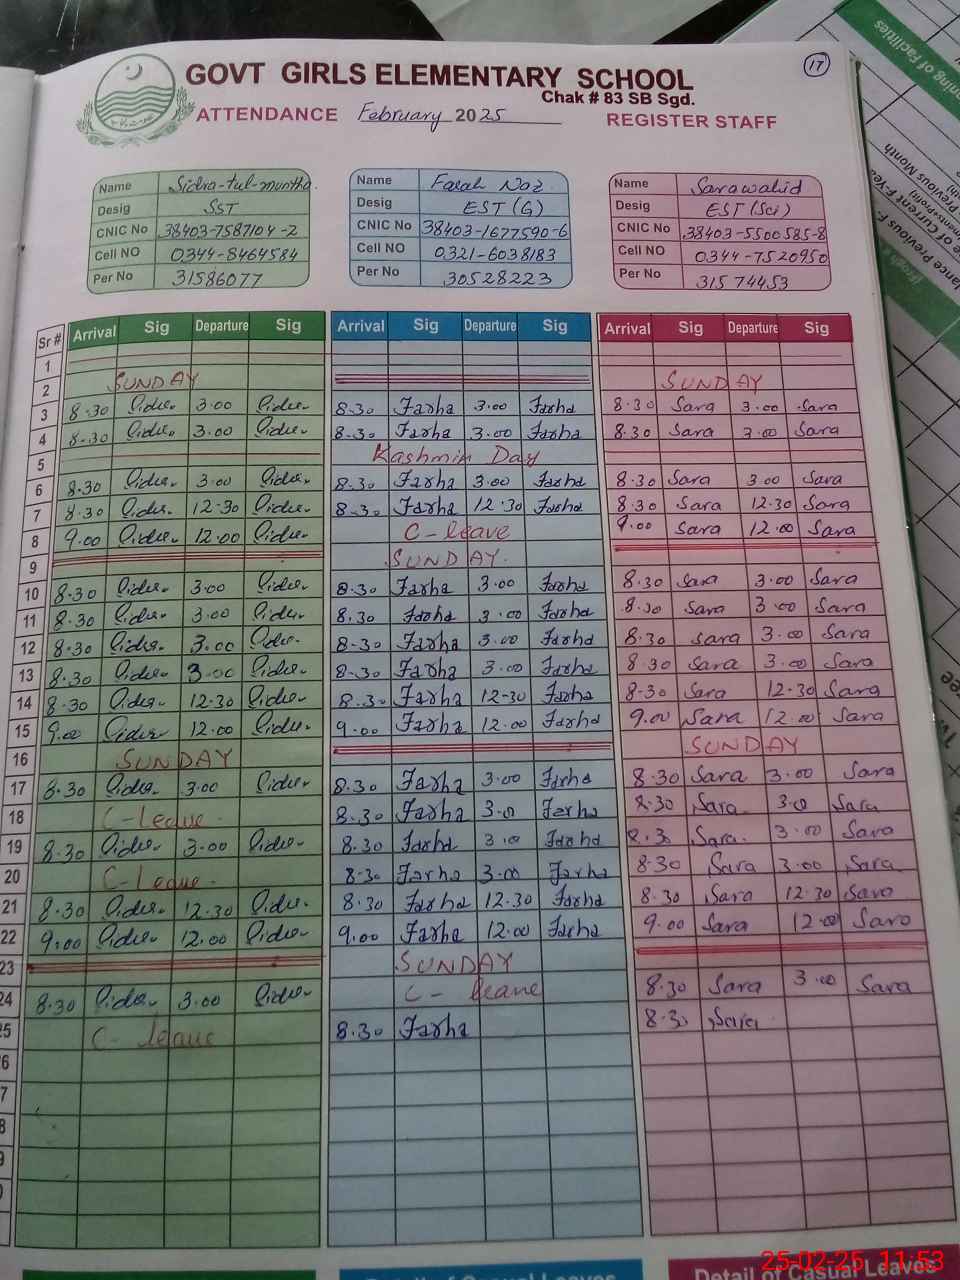 17
GOVT GIRLS ELEMENTARY SCHOOL
Chak # 83 SB Sgd.
ATTENDANCE February 2025 REGISTER STAFF
Name Sidra-tul-muntha Name Farah Naz Name Sarawahid
Desig SST Desig EST (G) Desig EST (Sci)
CNIC No 38403-7587104-2 CNIC No 38403-1677590-6 CNIC No 38403-5500585-8
Cell NO 0344-8464584 Cell NO 0321-6038183 Cell NO 0344-7520950
Per No 31586077 Per No 30528223 Per No 31574453
Sr # Arrival Sig Departure Sig Arrival Sig Departure Sig Arrival Sig Departure Sig
1
2 SUNDAY SUNDAY
3 8.30 Sidra 3.00 Sidra 8.30 Farha 3.00 Farha 8.30 Sara 3.00 Sara
4 8.30 Sidra 3.00 Sidra 8.30 Farha 3.00 Farha 8.30 Sara 3.00 Sara
5 Kashmir Day
6 8.30 Sidra 3.00 Sidra 8.30 Farha 3.00 Farha 8.30 Sara 3.00 Sara
7 8.30 Sidra 12.30 Sidra 8.30 Farha 12.30 Farha 8.30 Sara 12.30 Sara
8 9.00 Sidra 12.00 Sidra C-leave 9.00 Sara 12.00 Sara
9 SUNDAY
10 8.30 Sidra 3.00 Sidra 8.30 Farha 3.00 Farha 8.30 Sara 3.00 Sara
11 8.30 Sidra 3.00 Sidra 8.30 Farha 3.00 Farha 8.30 Sara 3.00 Sara
12 8.30 Sidra 3.00 Sidra 8.30 Farha 3.00 Farha 8.30 Sara 3.00 Sara
13 8.30 Sidra 3.00 Sidra 8.30 Farha 3.00 Farha 8.30 Sara 3.00 Sara
14 8.30 Sidra 12.30 Sidra 8.30 Farha 12.30 Farha 8.30 Sara 12.30 Sara
15 9.00 Sidra 12.00 Sidra 9.00 Farha 12.00 Farha 9.00 Sara 12.00 Sara
16 SUNDAY SUNDAY
17 8.30 Sidra 3.00 Sidra 8.30 Farha 3.00 Farha 8.30 Sara 3.00 Sara
18 C-leave 8.30 Farha 3.00 Farha 8.30 Sara 3.00 Sara
19 8.30 Sidra 3.00 Sidra 8.30 Farha 3.00 Farha 8.30 Sara 3.00 Sara
20 C-leave 8.30 Farha 3.00 Farha 8.30 Sara 3.00 Sara
21 8.30 Sidra 12.30 Sidra 8.30 Farha 12.30 Farha 8.30 Sara 12.30 Sara
22 9.00 Sidra 12.00 Sidra 9.00 Farha 12.00 Farha 9.00 Sara 12.00 Sara
23 SUNDAY
24 8.30 Sidra 3.00 Sidra C-leave 8.30 Sara 3.00 Sara
5 C-leave 8.30 Farha 8.30 Sara
6
7
8
9
Detail of Casual Leaves Detail of Casual Leaves
25-02-25 11:53